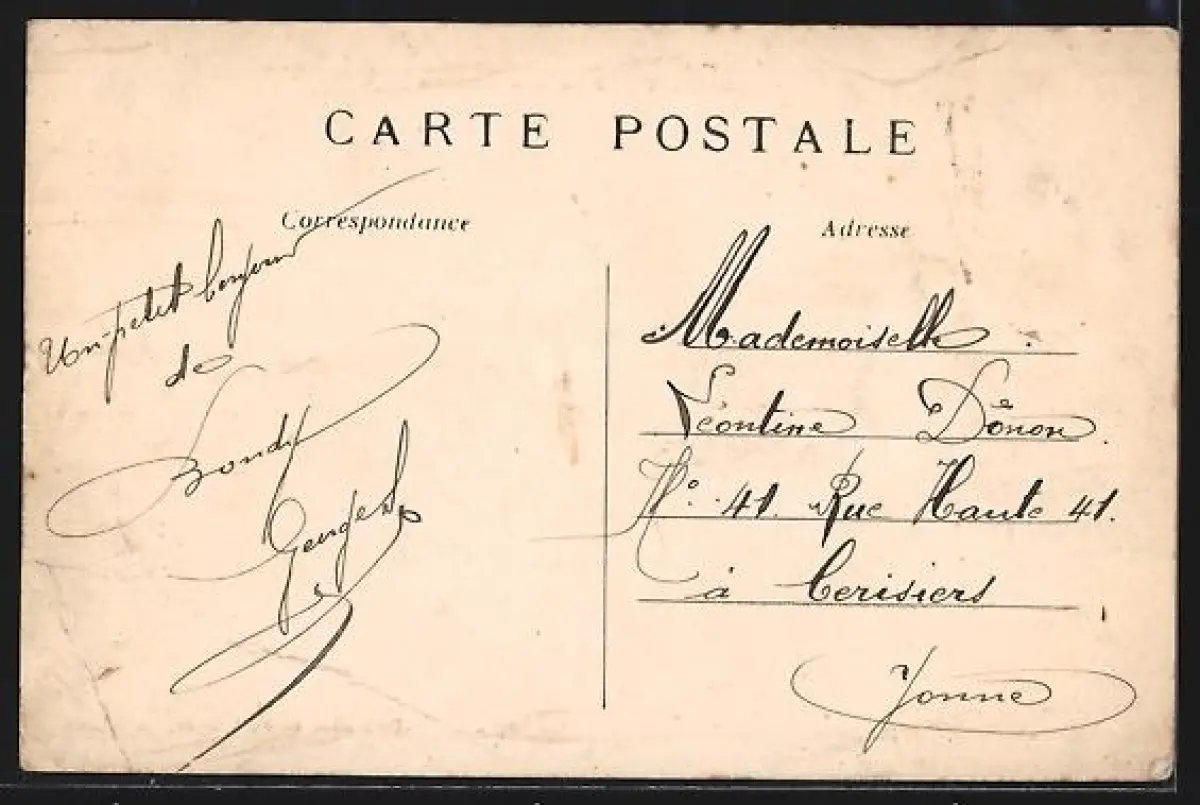 CARTE POSTALE
Correspondance
Un petit bonjour
de
Bondy
Georges
Adresse
Mademoiselle
Léontine Dônon
N° 41. Rue Haute 41.
à Cerisiers
Yonne